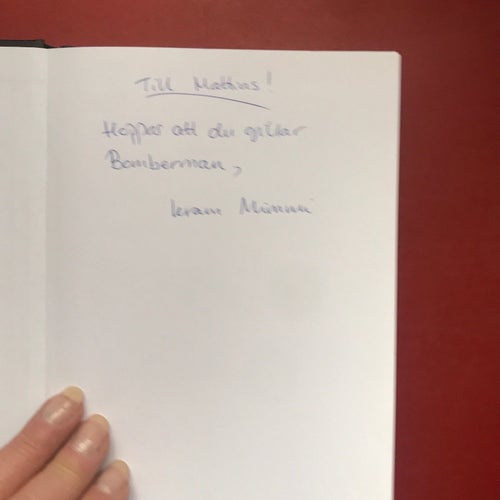 Till Mattias!
Hoppas att du gillar
Bomberman,
kram Mimmi